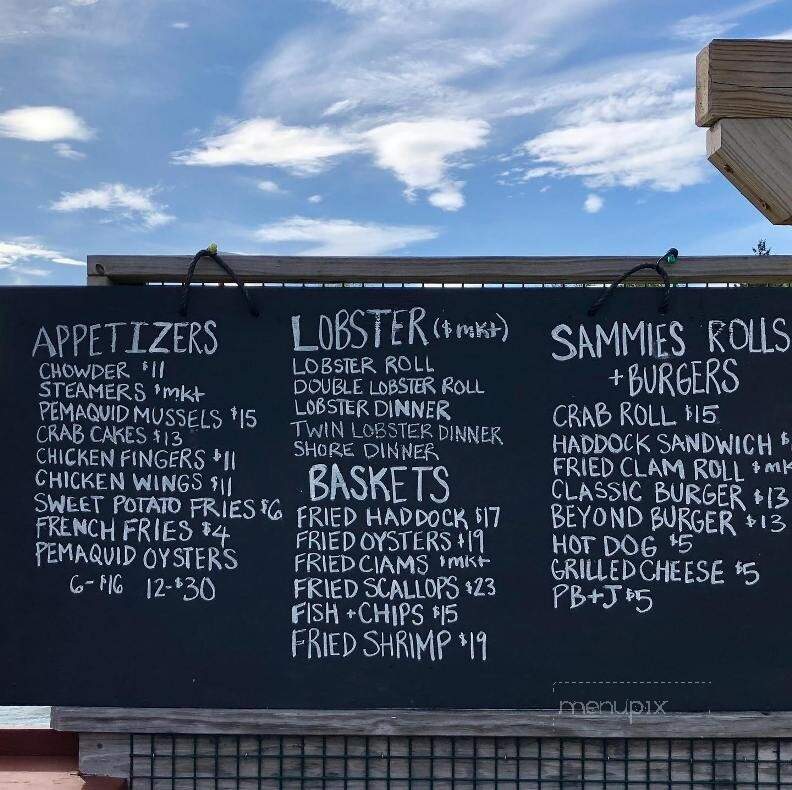 APPETIZERS
CHOWDER $11
STEAMERS $mkt
PEMAQUID MUSSELS $15
CRAB CAKES $13
CHICKEN FINGERS $11
CHICKEN WINGS $11
SWEET POTATO FRIES $6
FRENCH FRIES $4
PEMAQUID OYSTERS
6-$16 12-$30
LOBSTER ($mkt)
LOBSTER ROLL
DOUBLE LOBSTER ROLL
LOBSTER DINNER
TWIN LOBSTER DINNER
SHORE DINNER
BASKETS
FRIED HADDOCK $17
FRIED OYSTERS $19
FRIED CLAMS $mkt
FRIED SCALLOPS $23
FISH + CHIPS $15
FRIED SHRIMP $19
SAMMIES ROLLS
+ BURGERS
CRAB ROLL $15
HADDOCK SANDWICH $
FRIED CLAM ROLL $mk
CLASSIC BURGER $13
BEYOND BURGER $13
HOT DOG $5
GRILLED CHEESE $5
PB+J $5
menupix